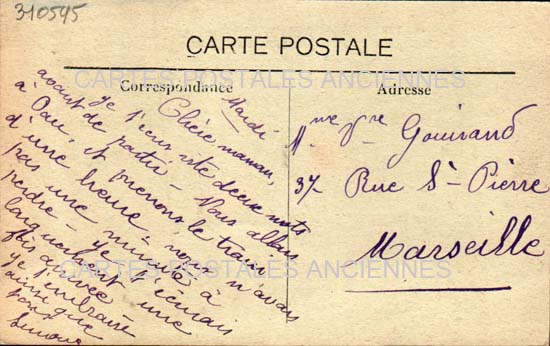 310545
CARTE POSTALE
CARTES POSTALES ANCIENNES
Correspondance
Adresse
Mardi
Chère maman,
je t'écris vite deux mots
avant de partir - Nous allons
à Pau, et prenons le train
d'une heure - nous n'avons
pas une minute à
perdre - Je t'écrirais
longuement une
fois arrivée
Je t'embrasse
ainsi que
Mme Vve Gouirand
37 Rue St-Pierre
Marseille
CARTES POSTALES ANCIENNES